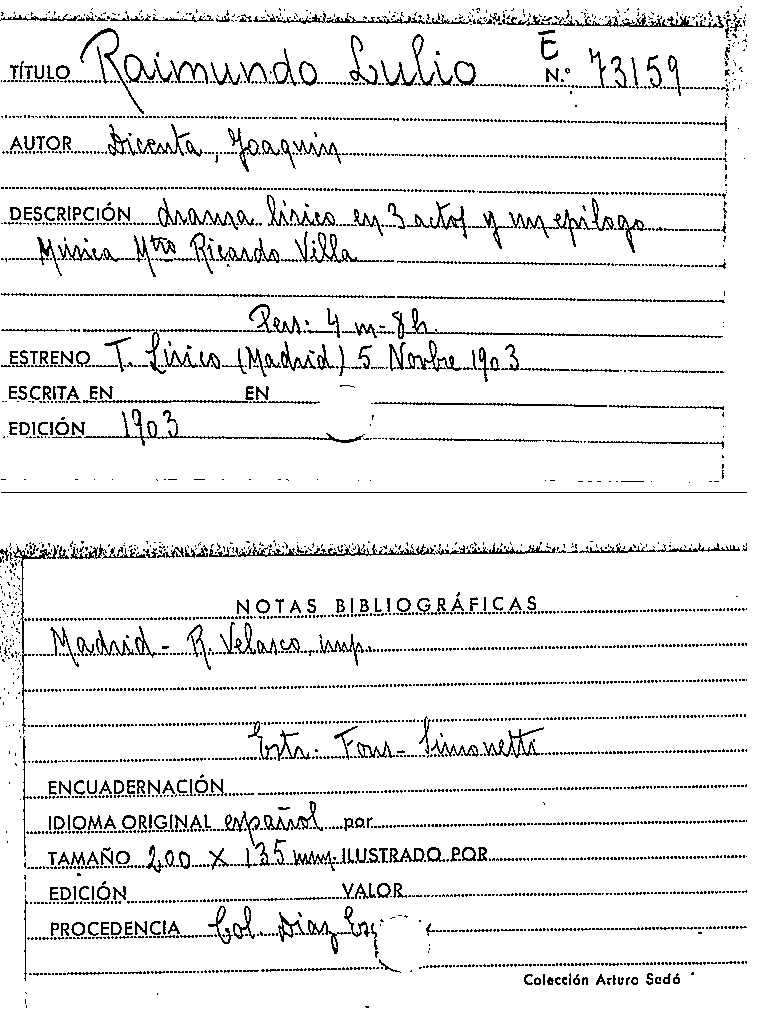 TÍTULO Raimundo Lulio E N.º 73159
AUTOR Dicenta, Joaquín
DESCRIPCIÓN drama lírico en 3 actos y un epílogo
Música Mtro Ricardo Villa
Pers: 4 m - 8 h.
ESTRENO T. Lírico (Madrid) 5 Novbre 1903
ESCRITA EN EN
EDICIÓN 1903
NOTAS BIBLIOGRÁFICAS
Madrid - R. Velasco, imp.
Estr. Fons - Simonetti
ENCUADERNACIÓN
IDIOMA ORIGINAL español por
TAMAÑO 200 X 135 mm. ILUSTRADO POR
EDICIÓN VALOR
PROCEDENCIA Col. Díaz
Colección Arturo Sedó